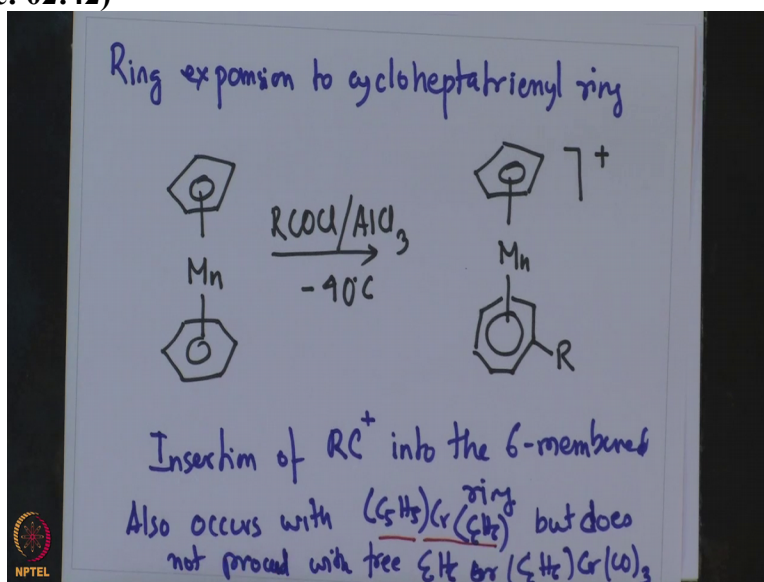 c: 02:42)
Ring expansion to cycloheptatrienyl ring
Mn
RCOCl/AlCl3
-40°C
]+
Mn
R
Insertion of RC+ into the 6-membered
ring
Also occurs with (C5H5)Cr(C6H6) but does
not proceed with free C6H6 or (C6H6)Cr(CO)3
NPTEL